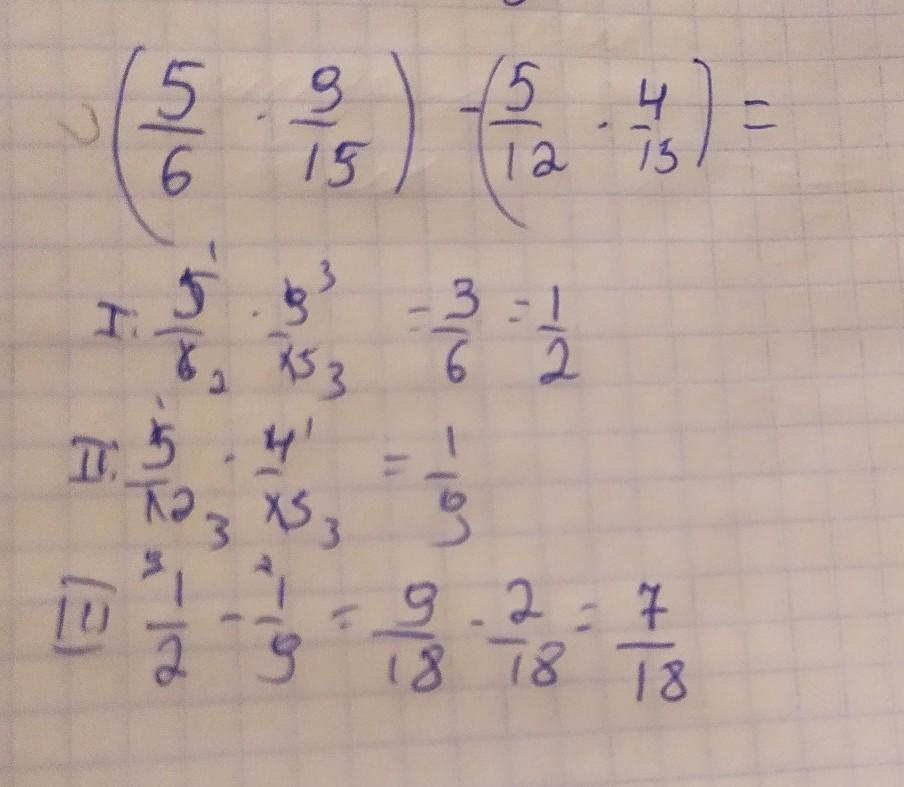 (5/6 · 9/15) - (5/12 · 4/15) =
I. 5¹/6₂ · 9³/15₃ = 3/6 = 1/2
II. 5¹/12₃ · 4¹/15₃ = 1/9
III ⁹1/2 - ²1/9 = 9/18 - 2/18 = 7/18